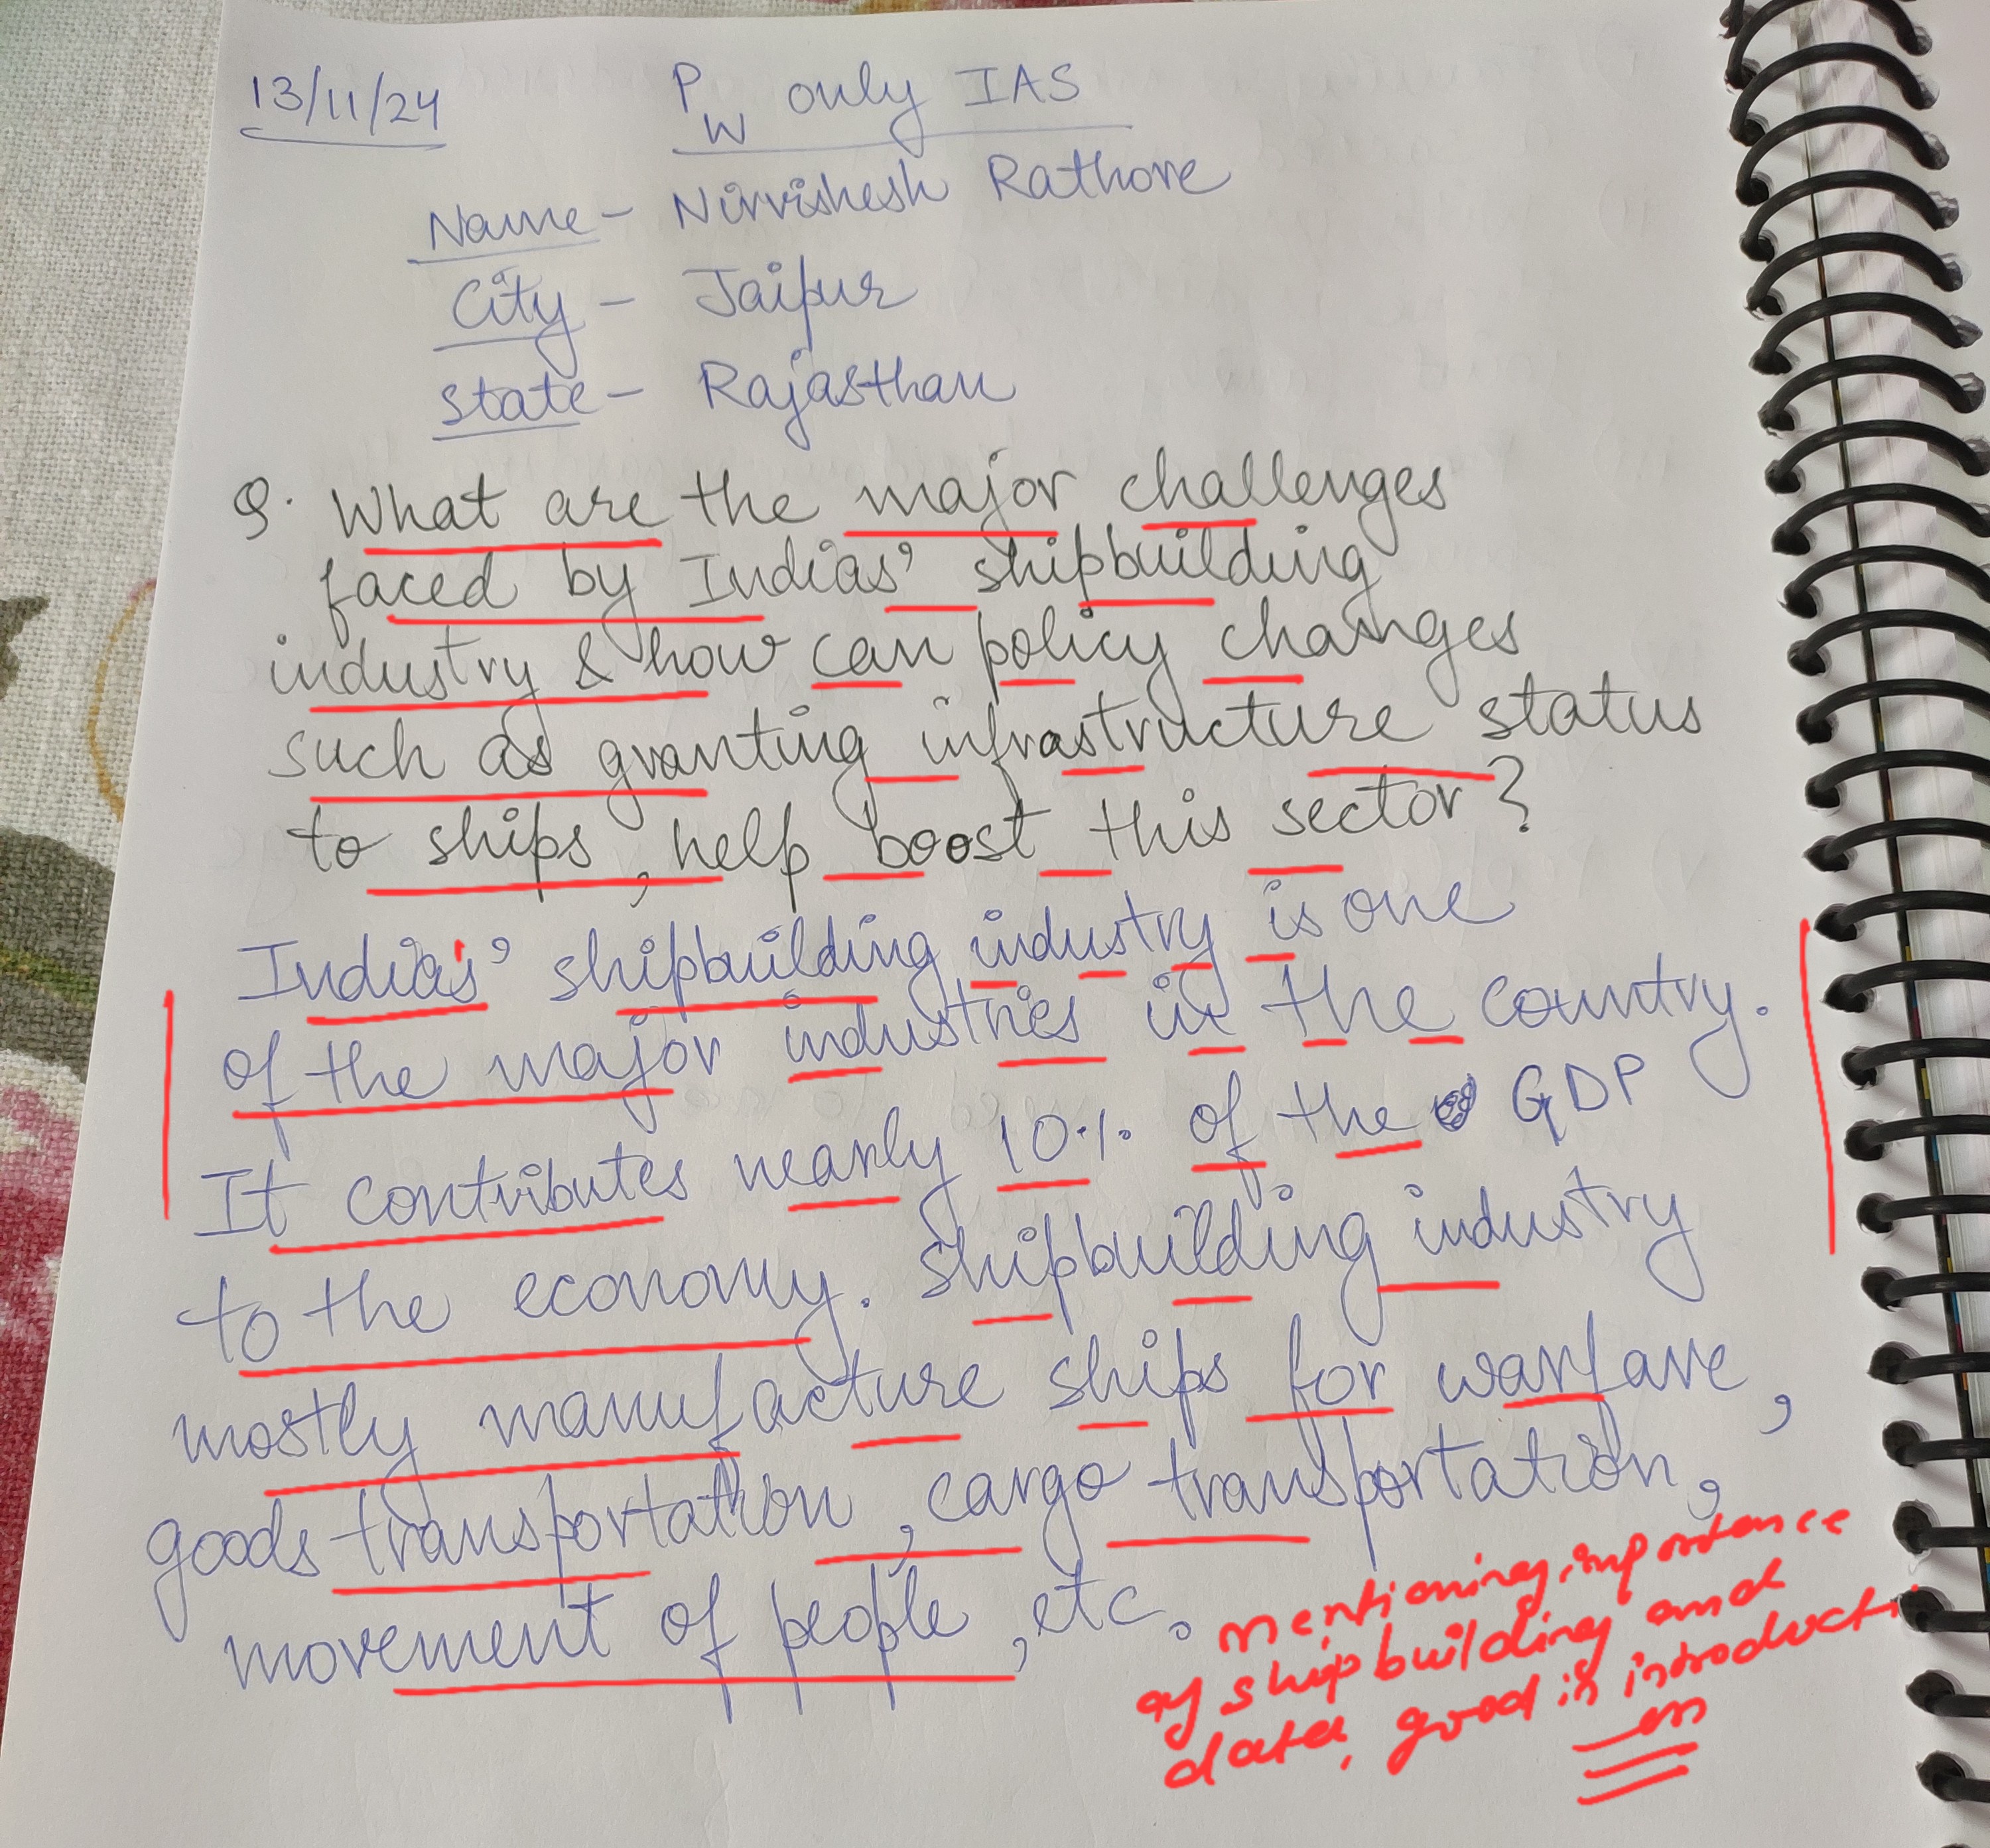 13/11/24
PW only IAS
Name - Nirvishesh Rathore
City - Jaipur
State - Rajasthan
Q. What are the major challenges
faced by Indias' shipbuilding
industry & how can policy changes
such as granting infrastructure status
to ships, help boost this sector?
Indias' shipbuilding industry is one
of the major industries in the country.
It contributes nearly 10% of the GDP
to the economy. Shipbuilding industry
mostly manufacture ships for warfare,
goods transportation, cargo transportation,
movement of people, etc.
mentioning importance
of shipbuilding and
data, good in introducti
on